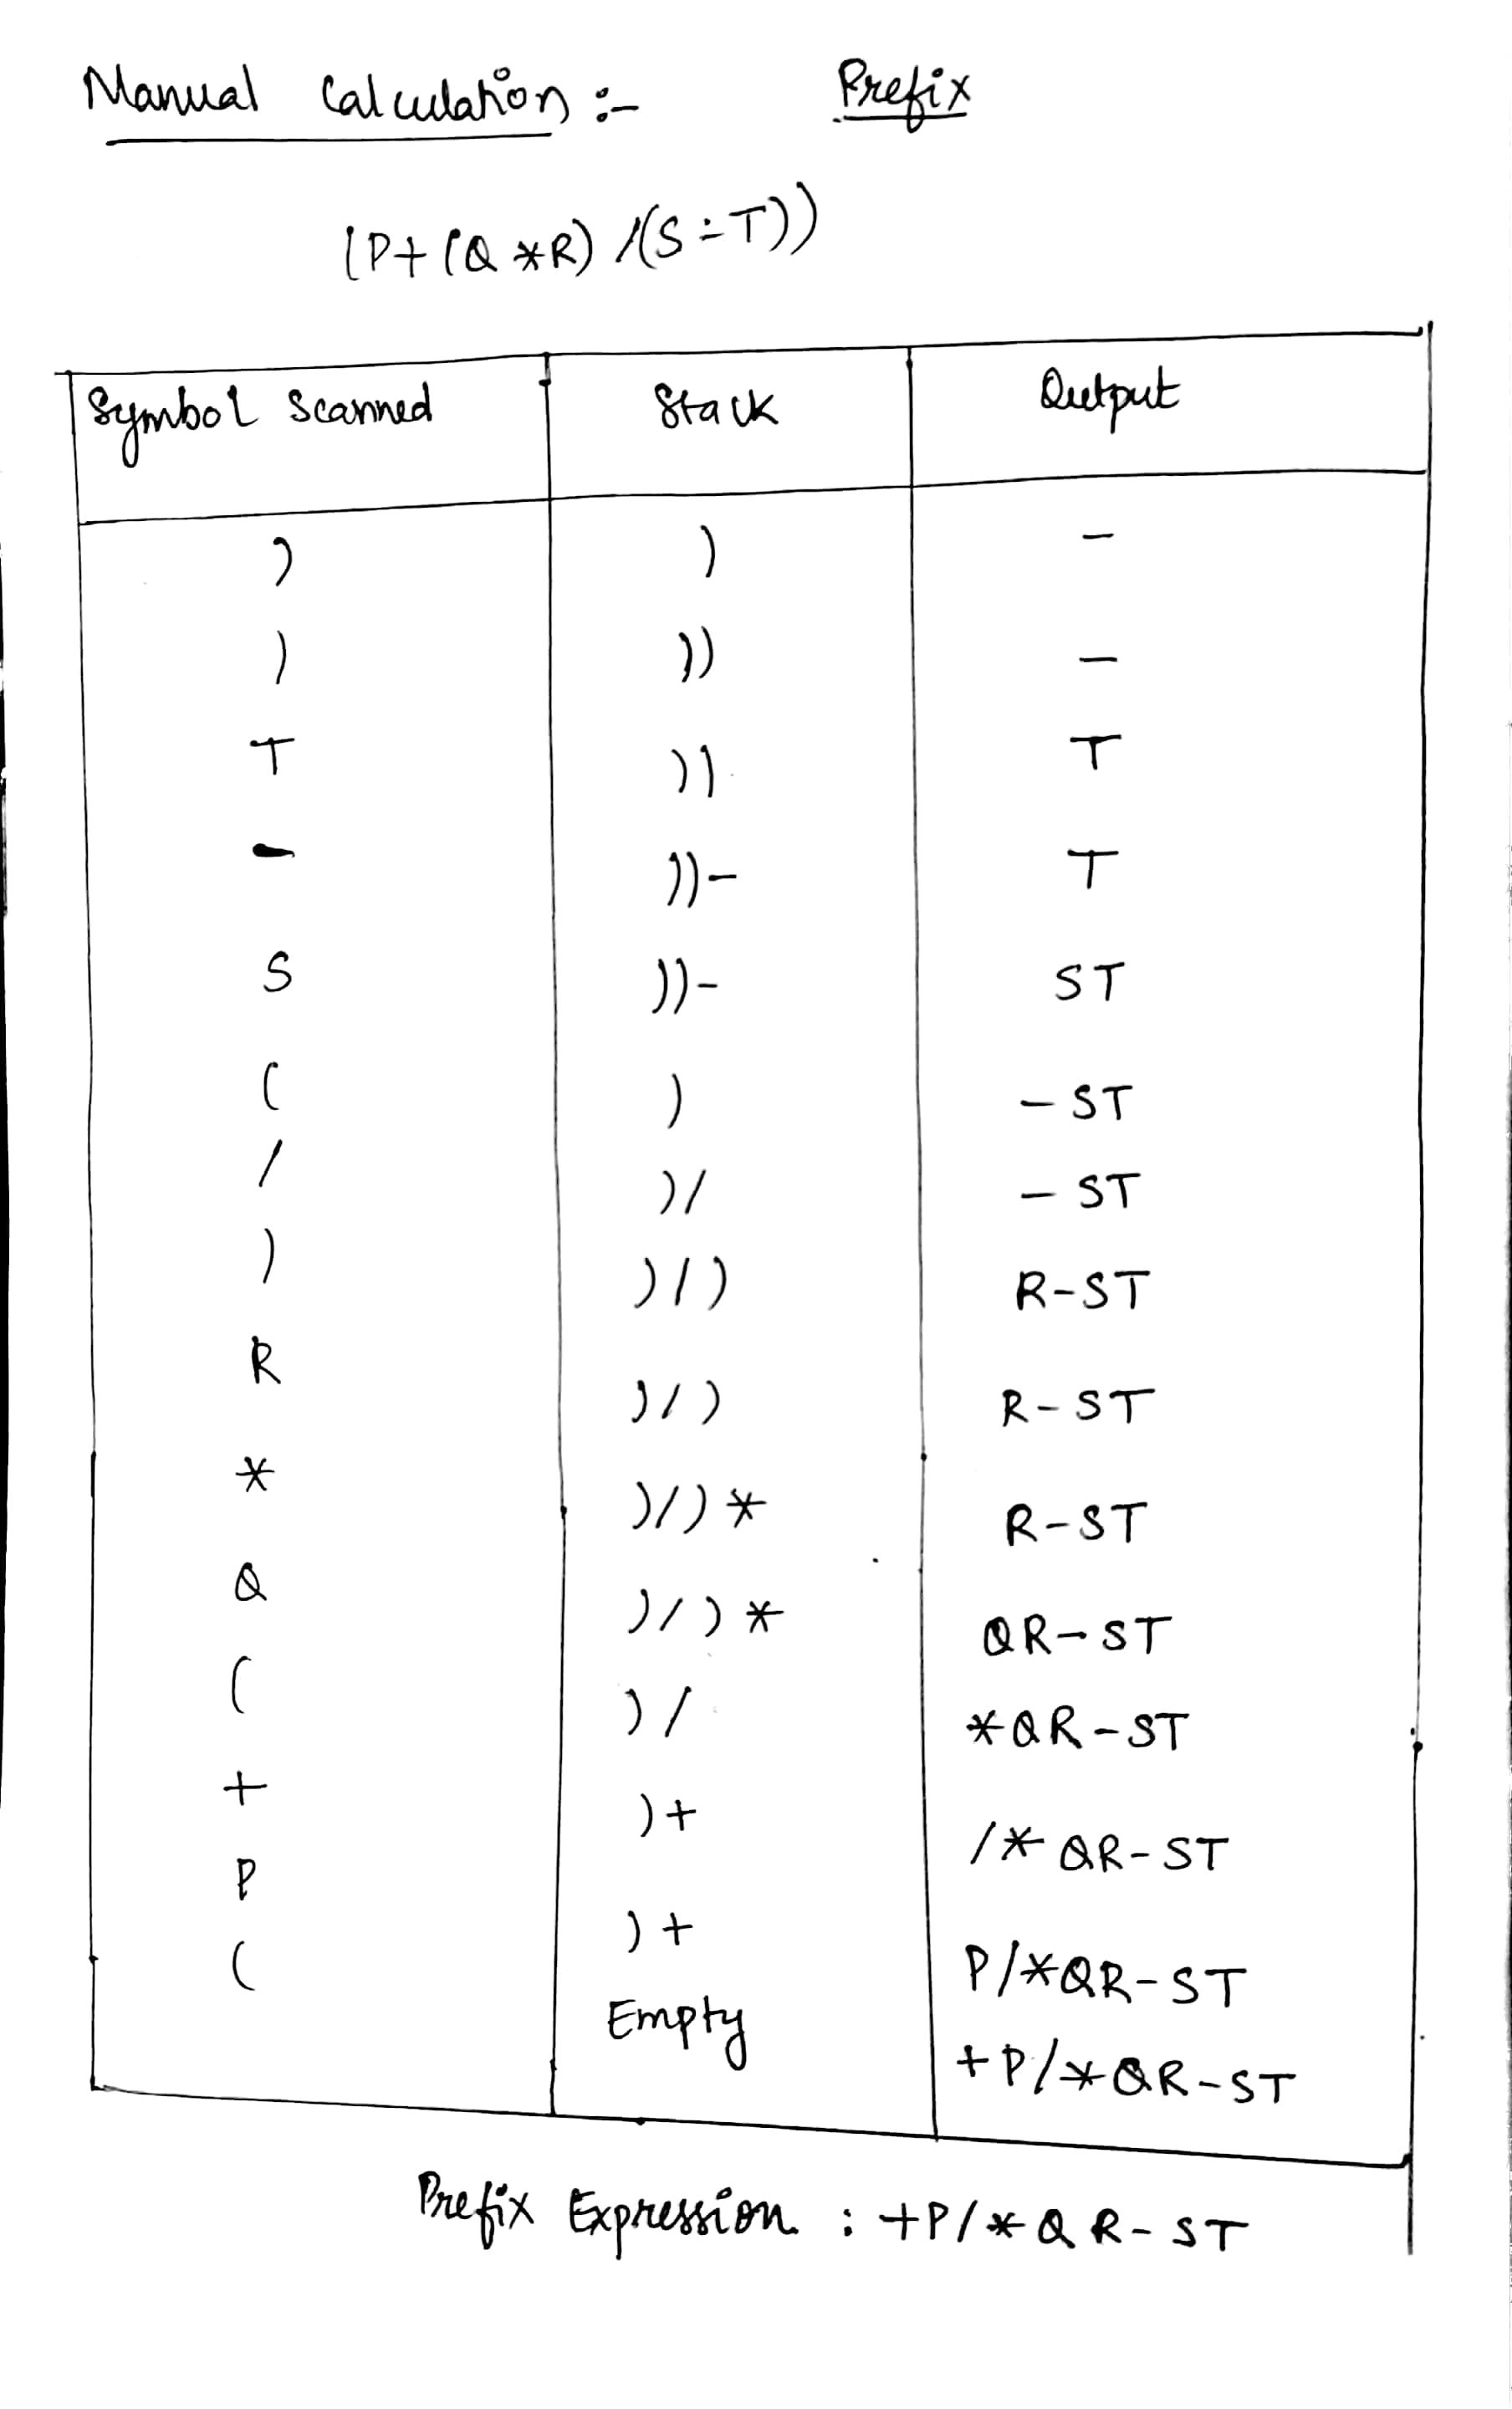 Manual Calculation :- Prefix
(P+(Q*R)/(S-T))
Symbol Scanned Stack Output
) ) -
) )) -
T )) T
- ))- T
S ))- ST
( ) -ST
/ )/ -ST
) )/) R-ST
R )/) R-ST
* )/)* R-ST
Q )/)* QR-ST
( )/ *QR-ST
+ )+ /*QR-ST
P )+ P/*QR-ST
( Empty +P/*QR-ST
Prefix Expression : +P/*QR-ST